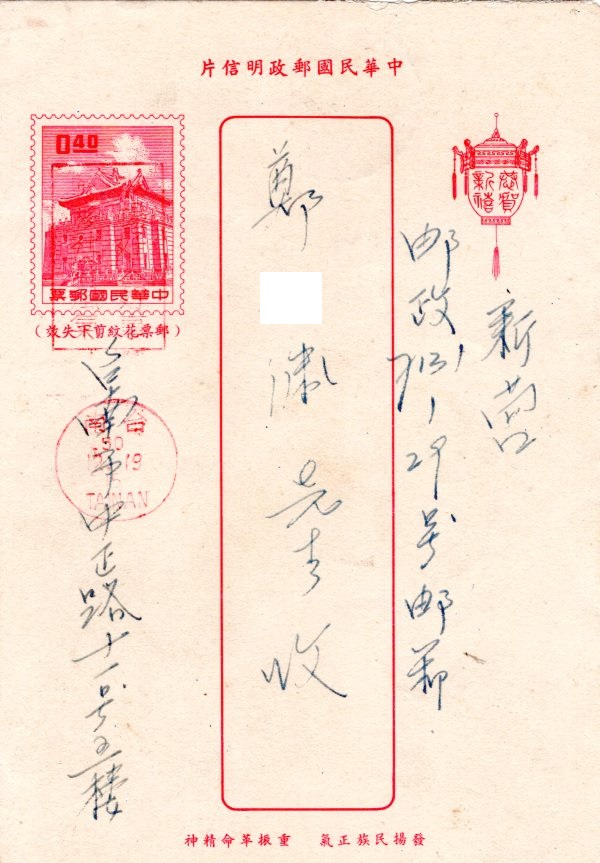 中華民國郵政明信片
恭賀
新禧
新營
郵政713，29号郵箱
鄭
先生
收
0.40
中華民國郵票
（郵票花紋剪下失效）
台南
TAINAN
台南市中正路十一号五楼
發揚民族正氣　重振革命精神